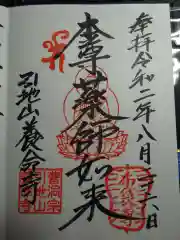 奉拝 令和二年八月二十六日
本尊 薬師如来
引地山養命寺